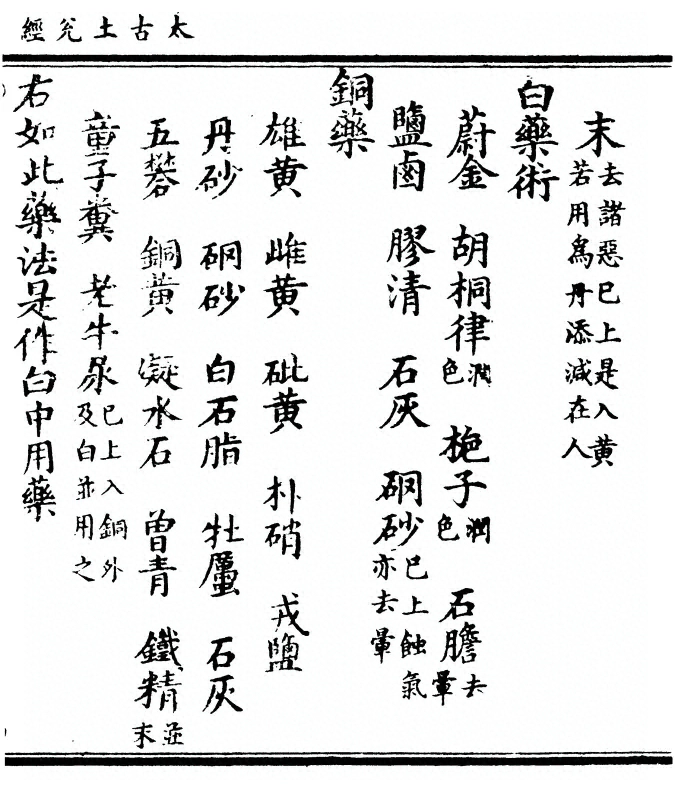 太古土兊經
末去諸惡已上是入黃若用為丹添減在人
白藥術
蔚金 胡桐律潤色 梔子潤色 石膽去暈
鹽鹵 膠清 石灰 硇砂已上蝕氣亦去暈
銅藥
雄黃 雌黃 砒黃 朴硝 戎鹽
丹砂 硇砂 白石脂 牡蠣 石灰
五礬 銅黃 凝水石 曾青 鐵精並末
童子糞 老牛尿已上入銅外及白並用之
右如此藥法是作白中用藥